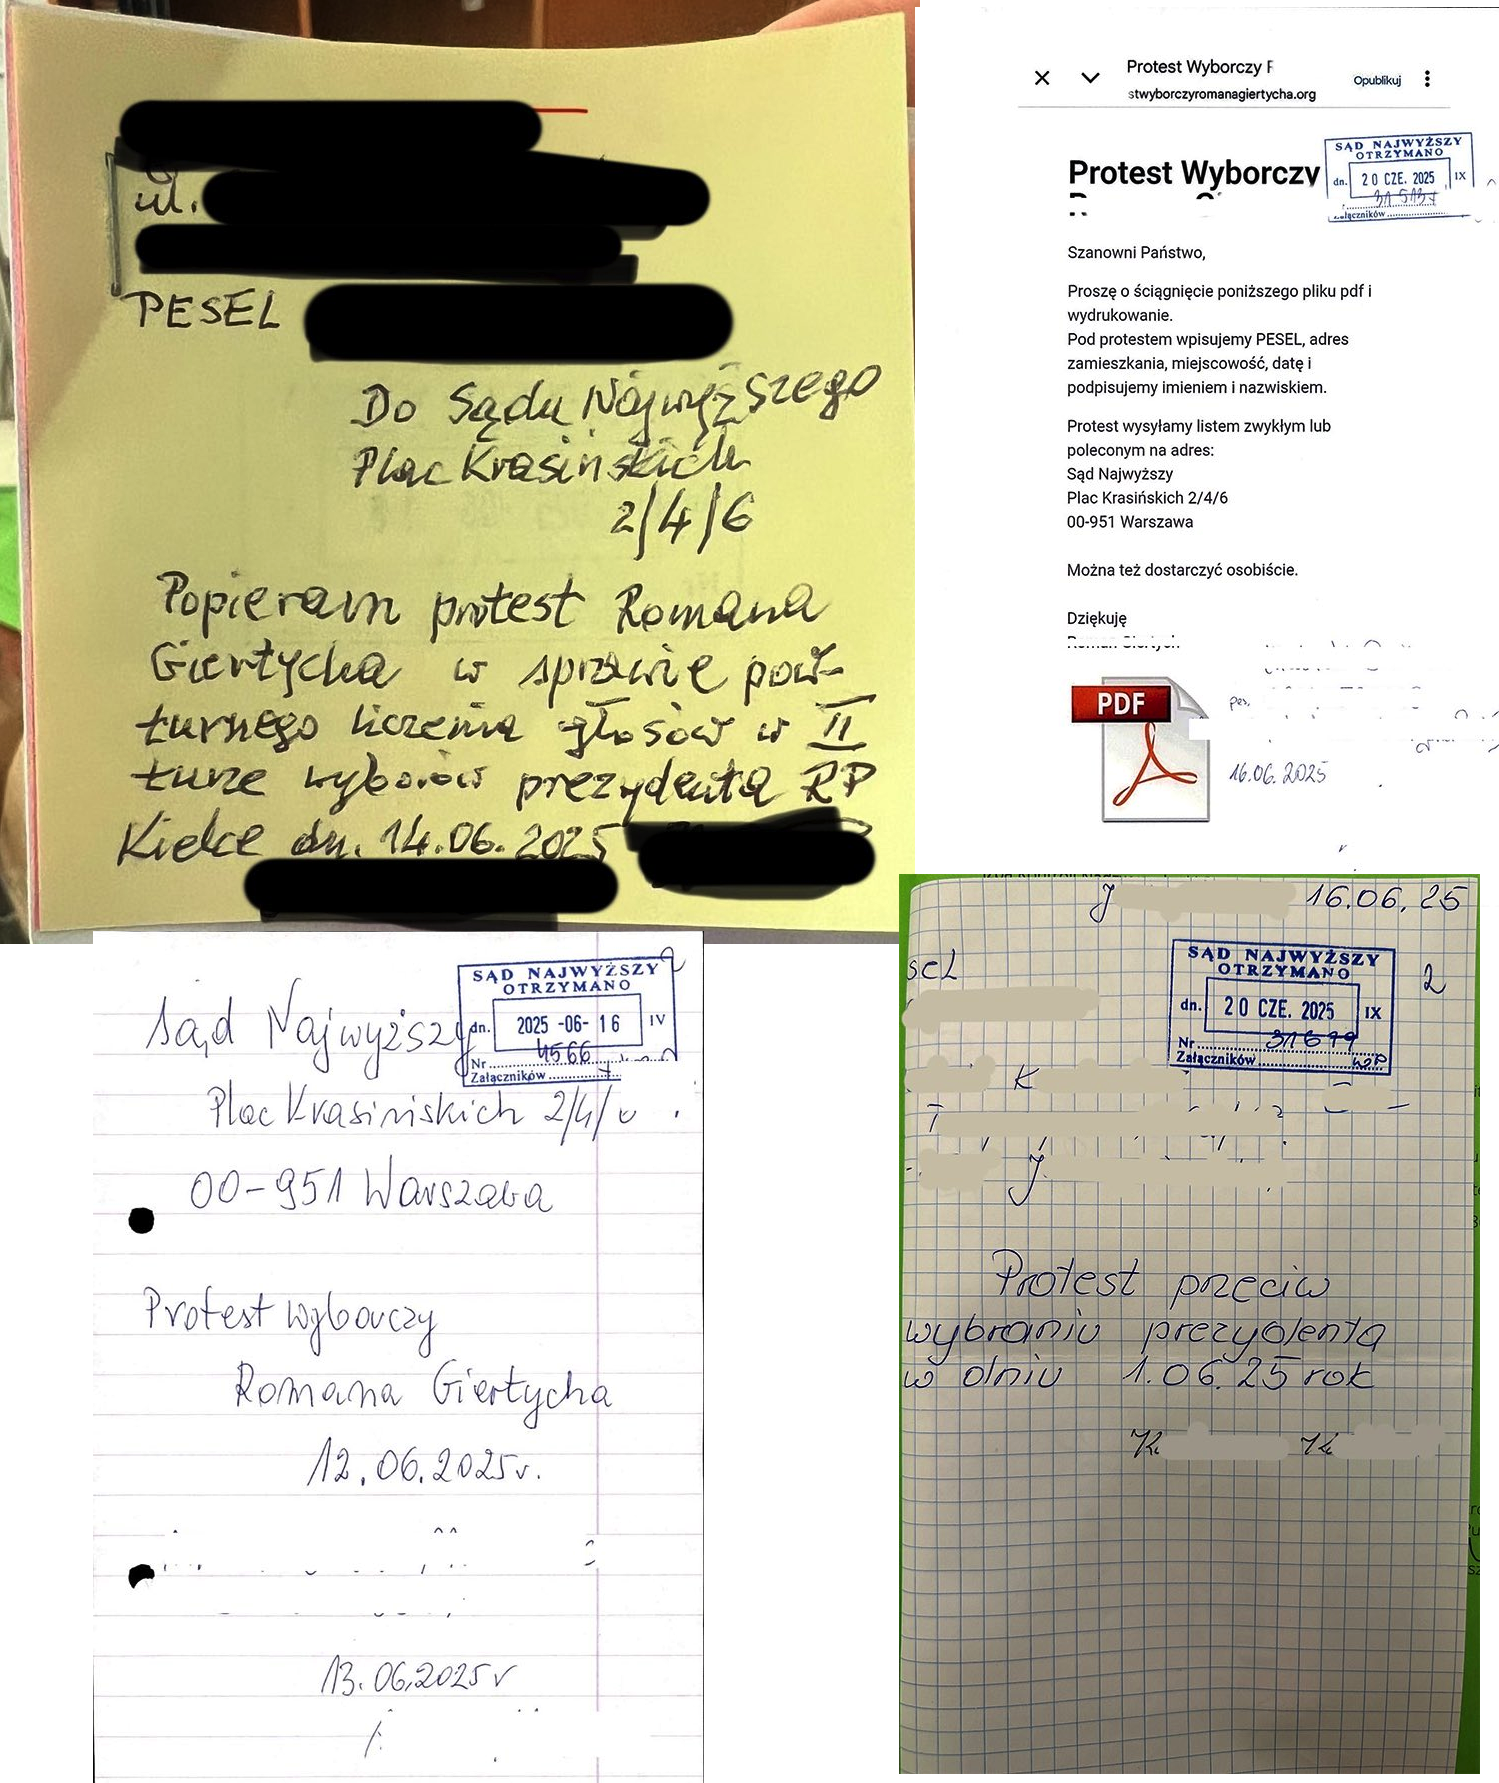 ul.
PESEL
Do Sądu Najwyższego
Plac Krasińskich
2/4/6
Popieram protest Romana
Giertycha w sprawie pow-
turnego liczenia głosów w II
turze wyborów prezydenta RP
Kielce dn. 14.06.2025
Protest Wyborczy
stwyborczyromanagiertycha.org
Opublikuj
Protest Wyborczy
SĄD NAJWYŻSZY
OTRZYMANO
dn. 20 CZE. 2025 IX
Załączników
Szanowni Państwo,
Proszę o ściągnięcie poniższego pliku pdf i
wydrukowanie.
Pod protestem wpisujemy PESEL, adres
zamieszkania, miejscowość, datę i
podpisujemy imieniem i nazwiskiem.
Protest wysyłamy listem zwykłym lub
poleconym na adres:
Sąd Najwyższy
Plac Krasińskich 2/4/6
00-951 Warszawa
Można też dostarczyć osobiście.
Dziękuję
Roman Giertych
PDF
16.06.2025
SĄD NAJWYŻSZY
OTRZYMANO
dn. 2025 -06- 16 IV
Nr 4566
Załączników
Sąd Najwyższy
Plac Krasińskich 2/4/
00-951 Warszawa
Protest wyborczy
Romana Giertycha
12.06.2025r.
13.06.2025r
J 16.06.25
SĄD NAJWYŻSZY
OTRZYMANO
dn. 20 CZE. 2025 IX
Nr 31679
Załączników
2
seL
K
T
J.
Protest przeciw
wybraniu prezydenta
w dniu 1.06.25 rok